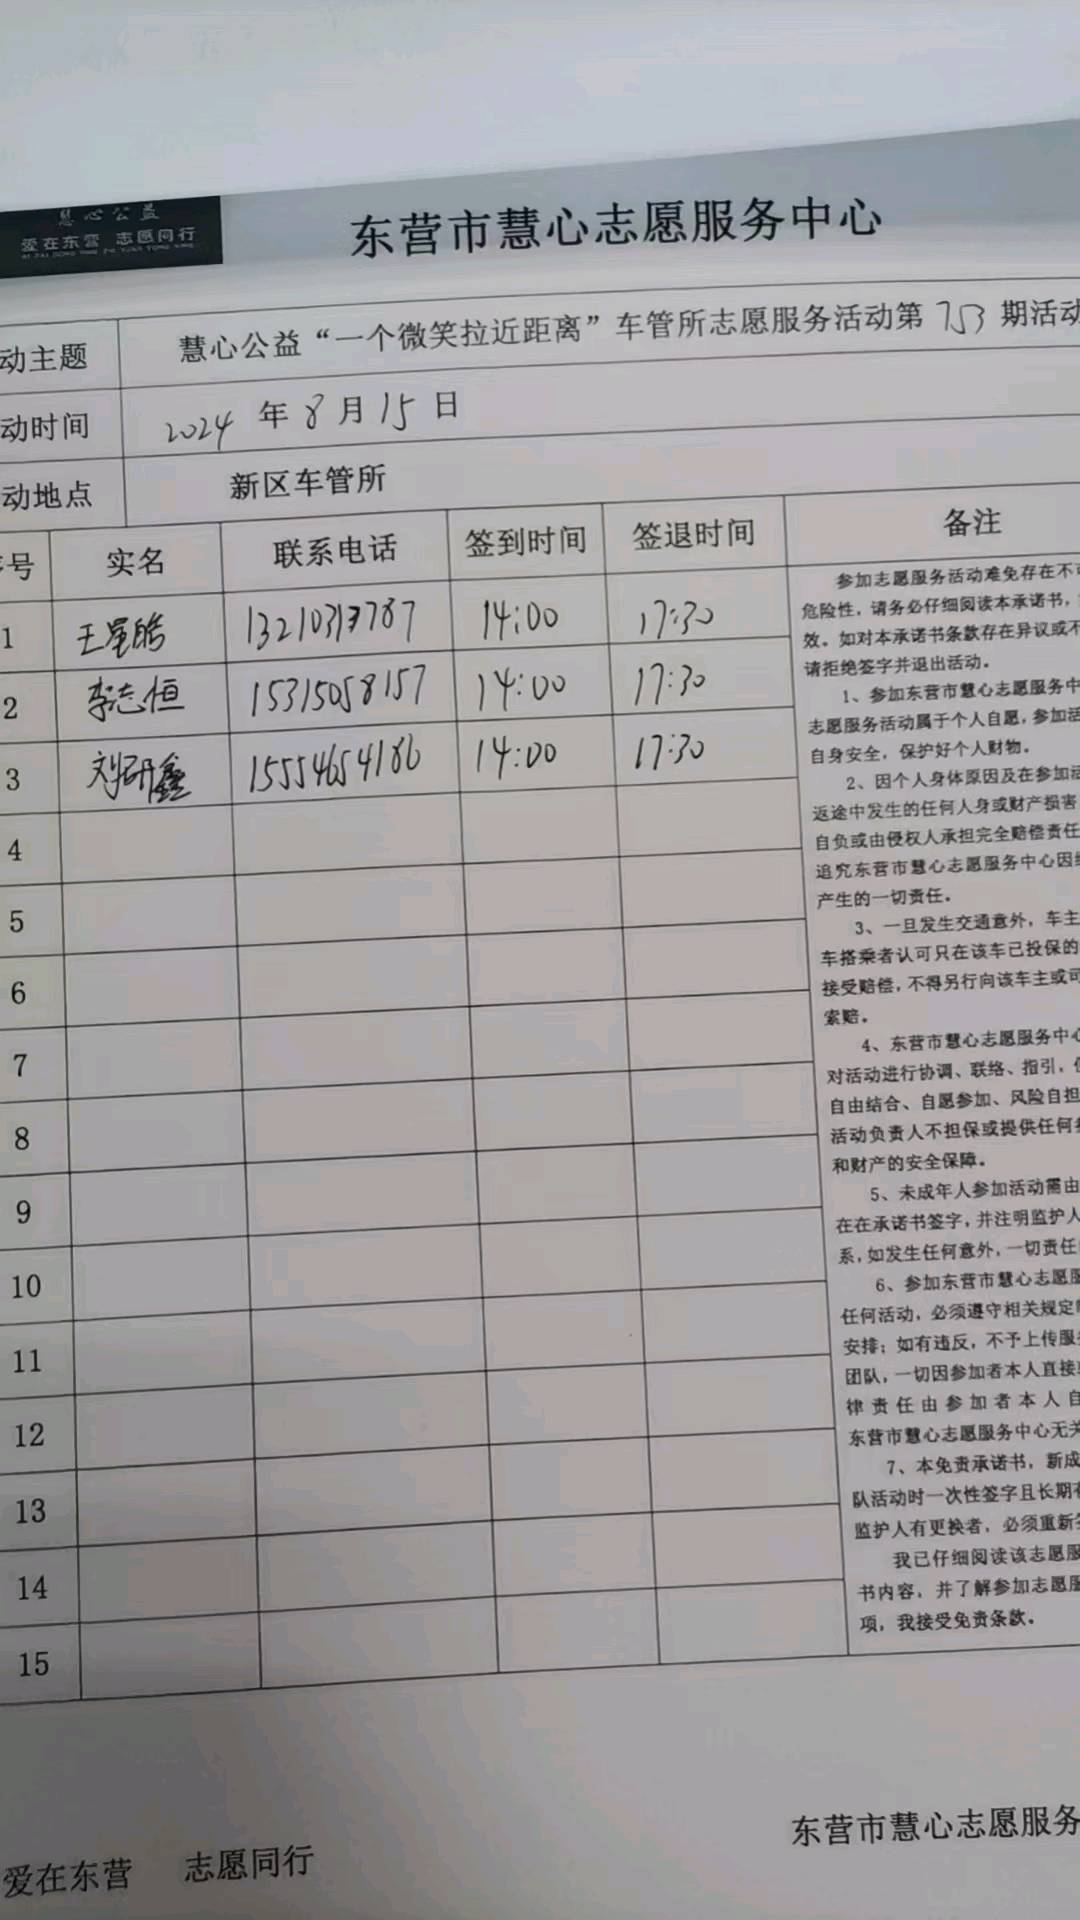 慧心公益
爱在东营 志愿同行
AI ZAI DONG YING ZHI YUAN TONG XING
东营市慧心志愿服务中心
动主题 慧心公益“一个微笑拉近距离”车管所志愿服务活动第 753 期活动
动时间 2024 年 8 月 15 日
动地点 新区车管所
号 实名 联系电话 签到时间 签退时间 备注
1 王星皓 13210313787 14:00 17:30
2 李志恒 15315058157 14:00 17:30
3 刘研鑫 15554654186 14:00 17:30
4
5
6
7
8
9
10
11
12
13
14
15
参加志愿服务活动难免存在不可
危险性，请务必仔细阅读本承诺书，
效。如对本承诺书条款存在异议或不
请拒绝签字并退出活动。
1、参加东营市慧心志愿服务中
志愿服务活动属于个人自愿，参加活
自身安全，保护好个人财物。
2、因个人身体原因及在参加活
返途中发生的任何人身或财产损害
自负或由侵权人承担完全赔偿责任
追究东营市慧心志愿服务中心因组
产生的一切责任。
3、一旦发生交通意外，车主
车搭乘者认可只在该车已投保的
接受赔偿，不得另行向该车主或司
索赔。
4、东营市慧心志愿服务中心
对活动进行协调、联络、指引，
自由结合、自愿参加、风险自担
活动负责人不担保或提供任何
和财产的安全保障。
5、未成年人参加活动需由
在在承诺书签字，并注明监护人
系，如发生任何意外，一切责任
6、参加东营市慧心志愿服
任何活动，必须遵守相关规定
安排；如有违反，不予上传服
团队，一切因参加者本人直接
律责任由参加者本人自
东营市慧心志愿服务中心无关
7、本免责承诺书，新成
队活动时一次性签字且长期有
监护人有更换者，必须重新
我已仔细阅读该志愿服
书内容，并了解参加志愿服
项，我接受免责条款。
东营市慧心志愿服务
爱在东营 志愿同行